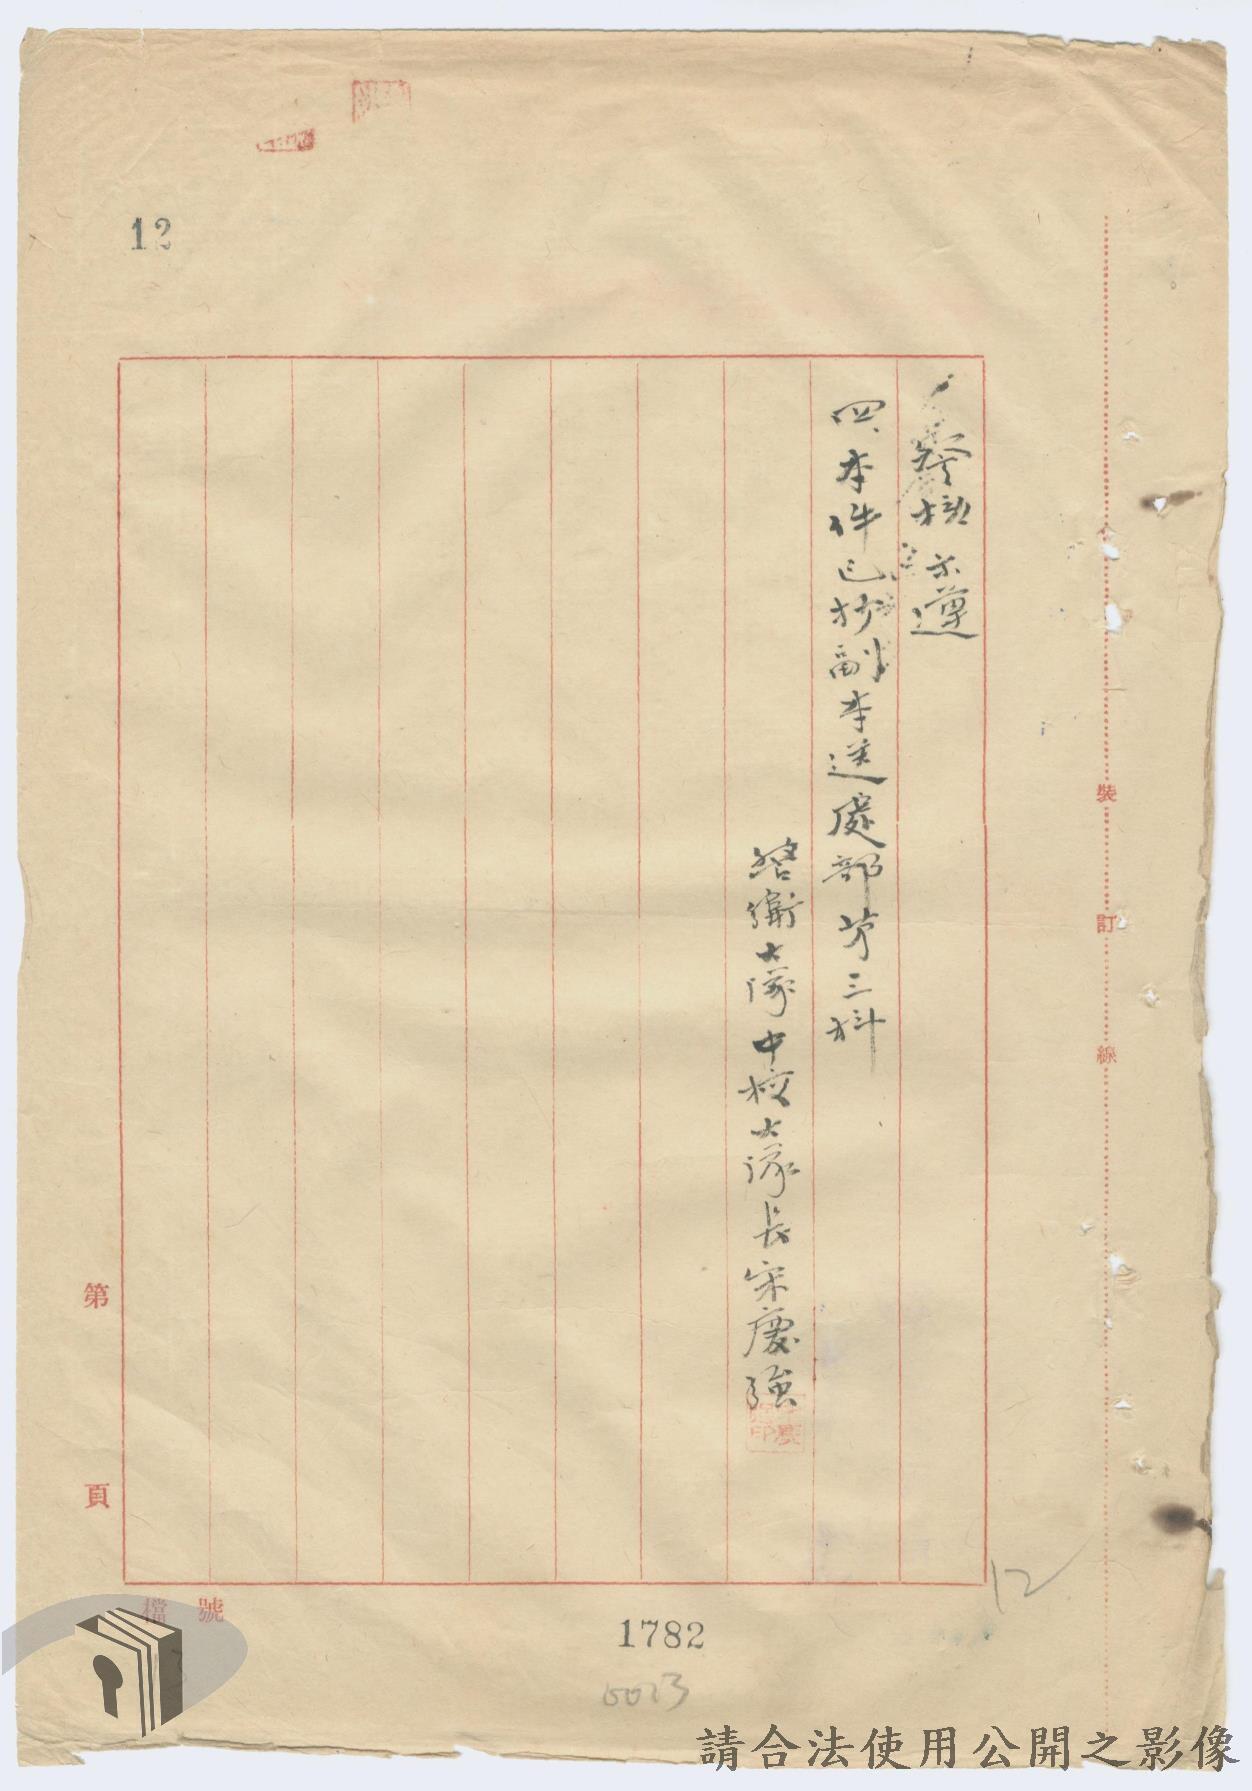 12
鑒核示遵
四、本件已抄副本送處部第三科
警衛大隊中校大隊長宋慶強
裝
訂
線
第
頁
檔號
12
1782
0023
請合法使用公開之影像